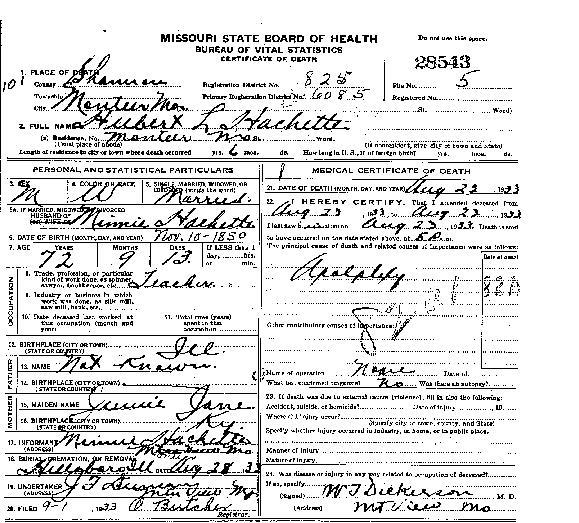 MISSOURI STATE BOARD OF HEALTH
BUREAU OF VITAL STATISTICS
CERTIFICATE OF DEATH
Do not use this space.
28543
1. PLACE OF DEATH
County Shannon Registration District No. 825 File No. 5
Township Primary Registration District No. 6085 Registered No.
City Monteer Mo. St. Ward)
2. FULL NAME Hubert L Hachette
(a) Residence, No. Monteer Mo. Ward.
(Usual place of abode) (If nonresident, give city or town and state)
Length of residence in city or town where death occurred yrs. 6 mos. ds. How long in U. S., if of foreign birth? yrs. mos. ds.
PERSONAL AND STATISTICAL PARTICULARS
3. SEX M 4. COLOR OR RACE W 5. SINGLE, MARRIED, WIDOWED, OR DIVORCED (write the word) Married.
5A. IF MARRIED, WIDOWED, OR DIVORCED
HUSBAND OF Minnie Hachette
6. DATE OF BIRTH (MONTH, DAY, AND YEAR) Nov. 10-1850
7. AGE YEARS MONTHS DAYS If LESS than 1
72 9 13 day, hrs.
or min.
OCCUPATION
8. Trade, profession, or particular
kind of work done, as spinner,
sawyer, bookkeeper, etc. Teacher
9. Industry or business in which
work was done, as silk mill,
saw mill, bank, etc.
10. Date deceased last worked at
this occupation (month and
year)
11. Total time (years)
spent in this
occupation
12. BIRTHPLACE (CITY OR TOWN)
(STATE OR COUNTRY) Ill.
FATHER
13. NAME Not Known.
14. BIRTHPLACE (CITY OR TOWN)
(STATE OR COUNTRY)
MOTHER
15. MAIDEN NAME Jennie Jane
16. BIRTHPLACE (CITY OR TOWN)
(STATE OR COUNTRY) Ky.
17. INFORMANT Minnie Hachette
(ADDRESS) Mo
18. BURIAL, CREMATION, OR REMOVAL
Hillsboro Ill DATE Aug 28 33
19. UNDERTAKER J F
(ADDRESS) Mtn View Mo
20. FILED 9-1 1933 O Butcher
Registrar.
MEDICAL CERTIFICATE OF DEATH
21. DATE OF DEATH (MONTH, DAY, AND YEAR) Aug 23 1933
22. I HEREBY CERTIFY, That I attended deceased from
Aug 23 1933 to Aug 23 1933
I last saw alive on Aug 23 1933. Death is said
to have occurred on the date stated above, at m.
The principal cause of death and related causes of importance were as follows:
Date of onset
Apoplexy
Other contributory causes of importance:
Name of operation None
What test confirmed diagnosis? No Was there an autopsy?
23. If death was due to external causes (violence), fill in also the following:
Accident, suicide, or homicide? Date of injury 19
Where did injury occur?
(Specify city or town, county, and State)
Specify whether injury occurred in industry, in home, or in public place.
Manner of injury
Nature of injury
24. Was disease or injury in any way related to occupation of deceased?
If so, specify
(Signed) W T Dickerson M. D.
(Address) Mt View Mo